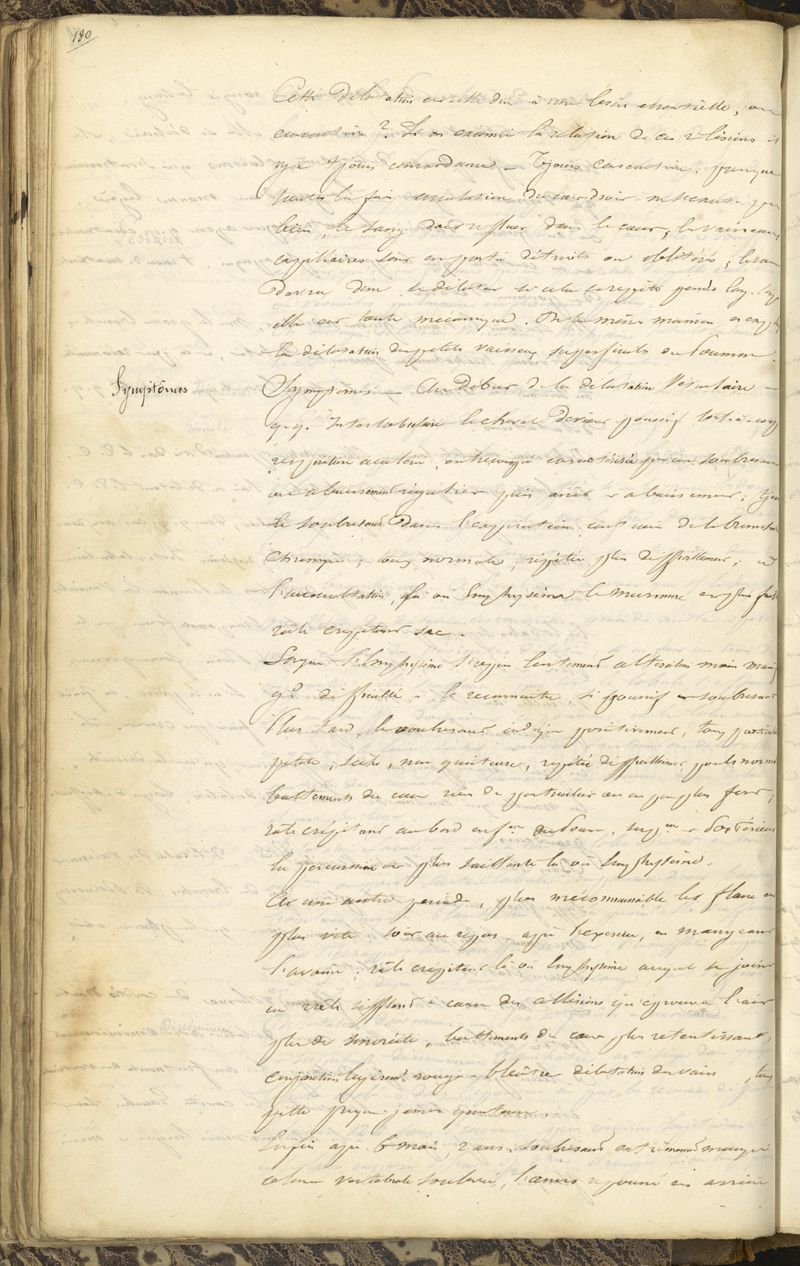 180
Cette dilatation est-elle due à une lésion essentielle, ou
consécutive ? Si on examine la relation de ces 2 lésions il
y a tjours concordance — Tjours consécutive ; puisque
toutes les fois circulation du cœur droit
bien, le sang doit refluer dans le cœur, les vaisseaux
capillaires sont en partie détruits ou oblitérés ; le cœur
devra donc se dilater si cela se répète pendt longtemps
elle est toute mécanique. De la même manière
la dilatation des petits vaisseaux superficiels du Poumon.
Symptômes
Symptômes — Au début de la dilatation Vésiculaire —
q.q. Interlobulaire le cheval devient poussif tout-à-coup
respiration accélérée, entrecoupée caractérisée par un soubresaut
un abaissement régulier puis arrêt — abaissement ;
le soubresaut dans l'expiration, de la bronchite
chronique ; toux normale, répétée plus difficilement ;
l'auscultation, où Emphysème le murmure est plus faible
râle crépitant sec.
Lorsque l'Emphysème s'est lentement altération moins
gde difficulté à le reconnaître, si poussif — soubresaut
Plus tard, le soubresaut indique positivement, toux particulière
petite, sèche, non quinteuse, répétée difficilement pouls normal
battements du cœur rien de particulier ou un peu plus forts ;
râle crépitant au bord infeur du Poumon, supeur — Postérieur
la percussion est plus saillante là où Emphysème.
A une autre période, plus méconnaissable les flancs
plus vite, soit au repos, après l'exercice, en mangeant
l'avoine ; râle crépitant là où Emphysème auquel se joint
un râle sifflant à cause des collisions qu'éprouve l'air
plus de sonoréité, battements du cœur plus retentissants,
conjonctive légèremt rouge — bleuâtre dilatation des vais , toux
petite presque jamais quinteuse
Enfin après 6 mois, 2 ans, soubresaut extrêmement marqué
colonne vertebrale soulevée, l'anus repoussé en arrière